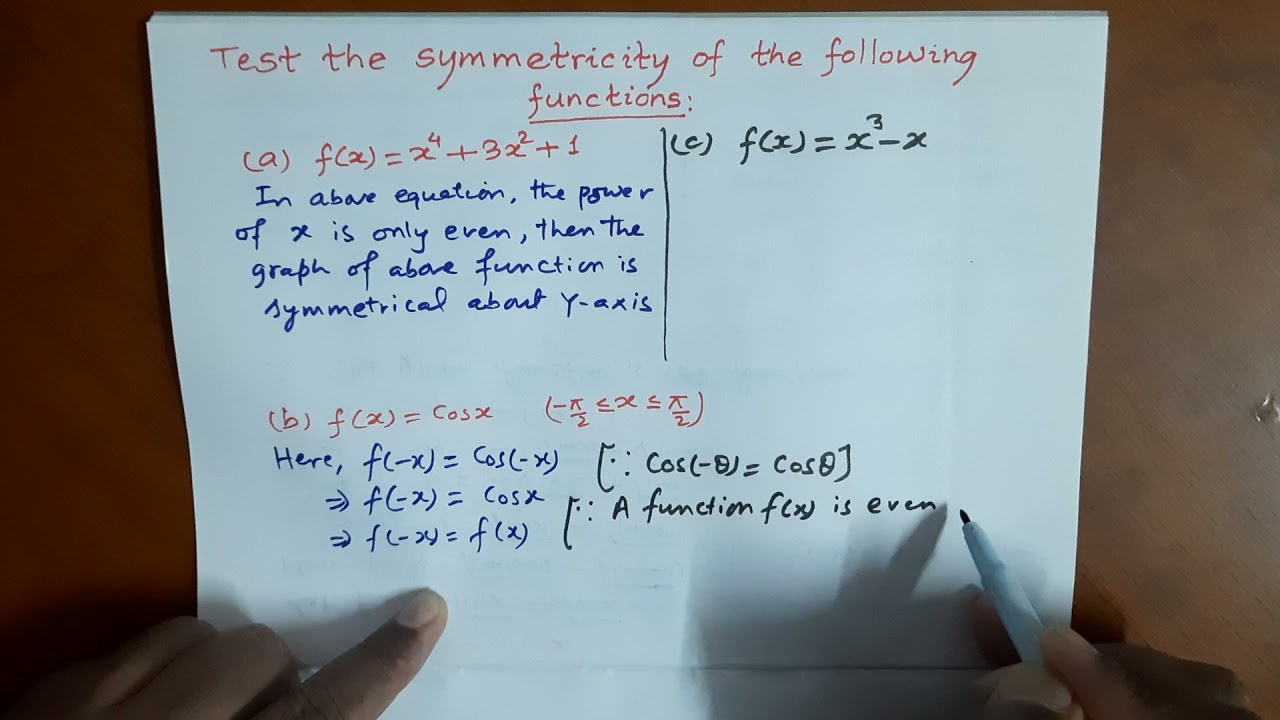 Test the symmetricity of the following
functions:
(a) f(x) = x⁴ + 3x² + 1
In above equation, the power
of x is only even, then the
graph of above function is
symmetrical about Y-axis
(c) f(x) = x³ - x
(b) f(x) = Cosx (-π/2 ≤ x ≤ π/2)
Here, f(-x) = Cos(-x) [∵ Cos(-θ) = Cosθ]
⇒ f(-x) = Cosx
⇒ f(-x) = f(x) [∵ A function f(x) is even